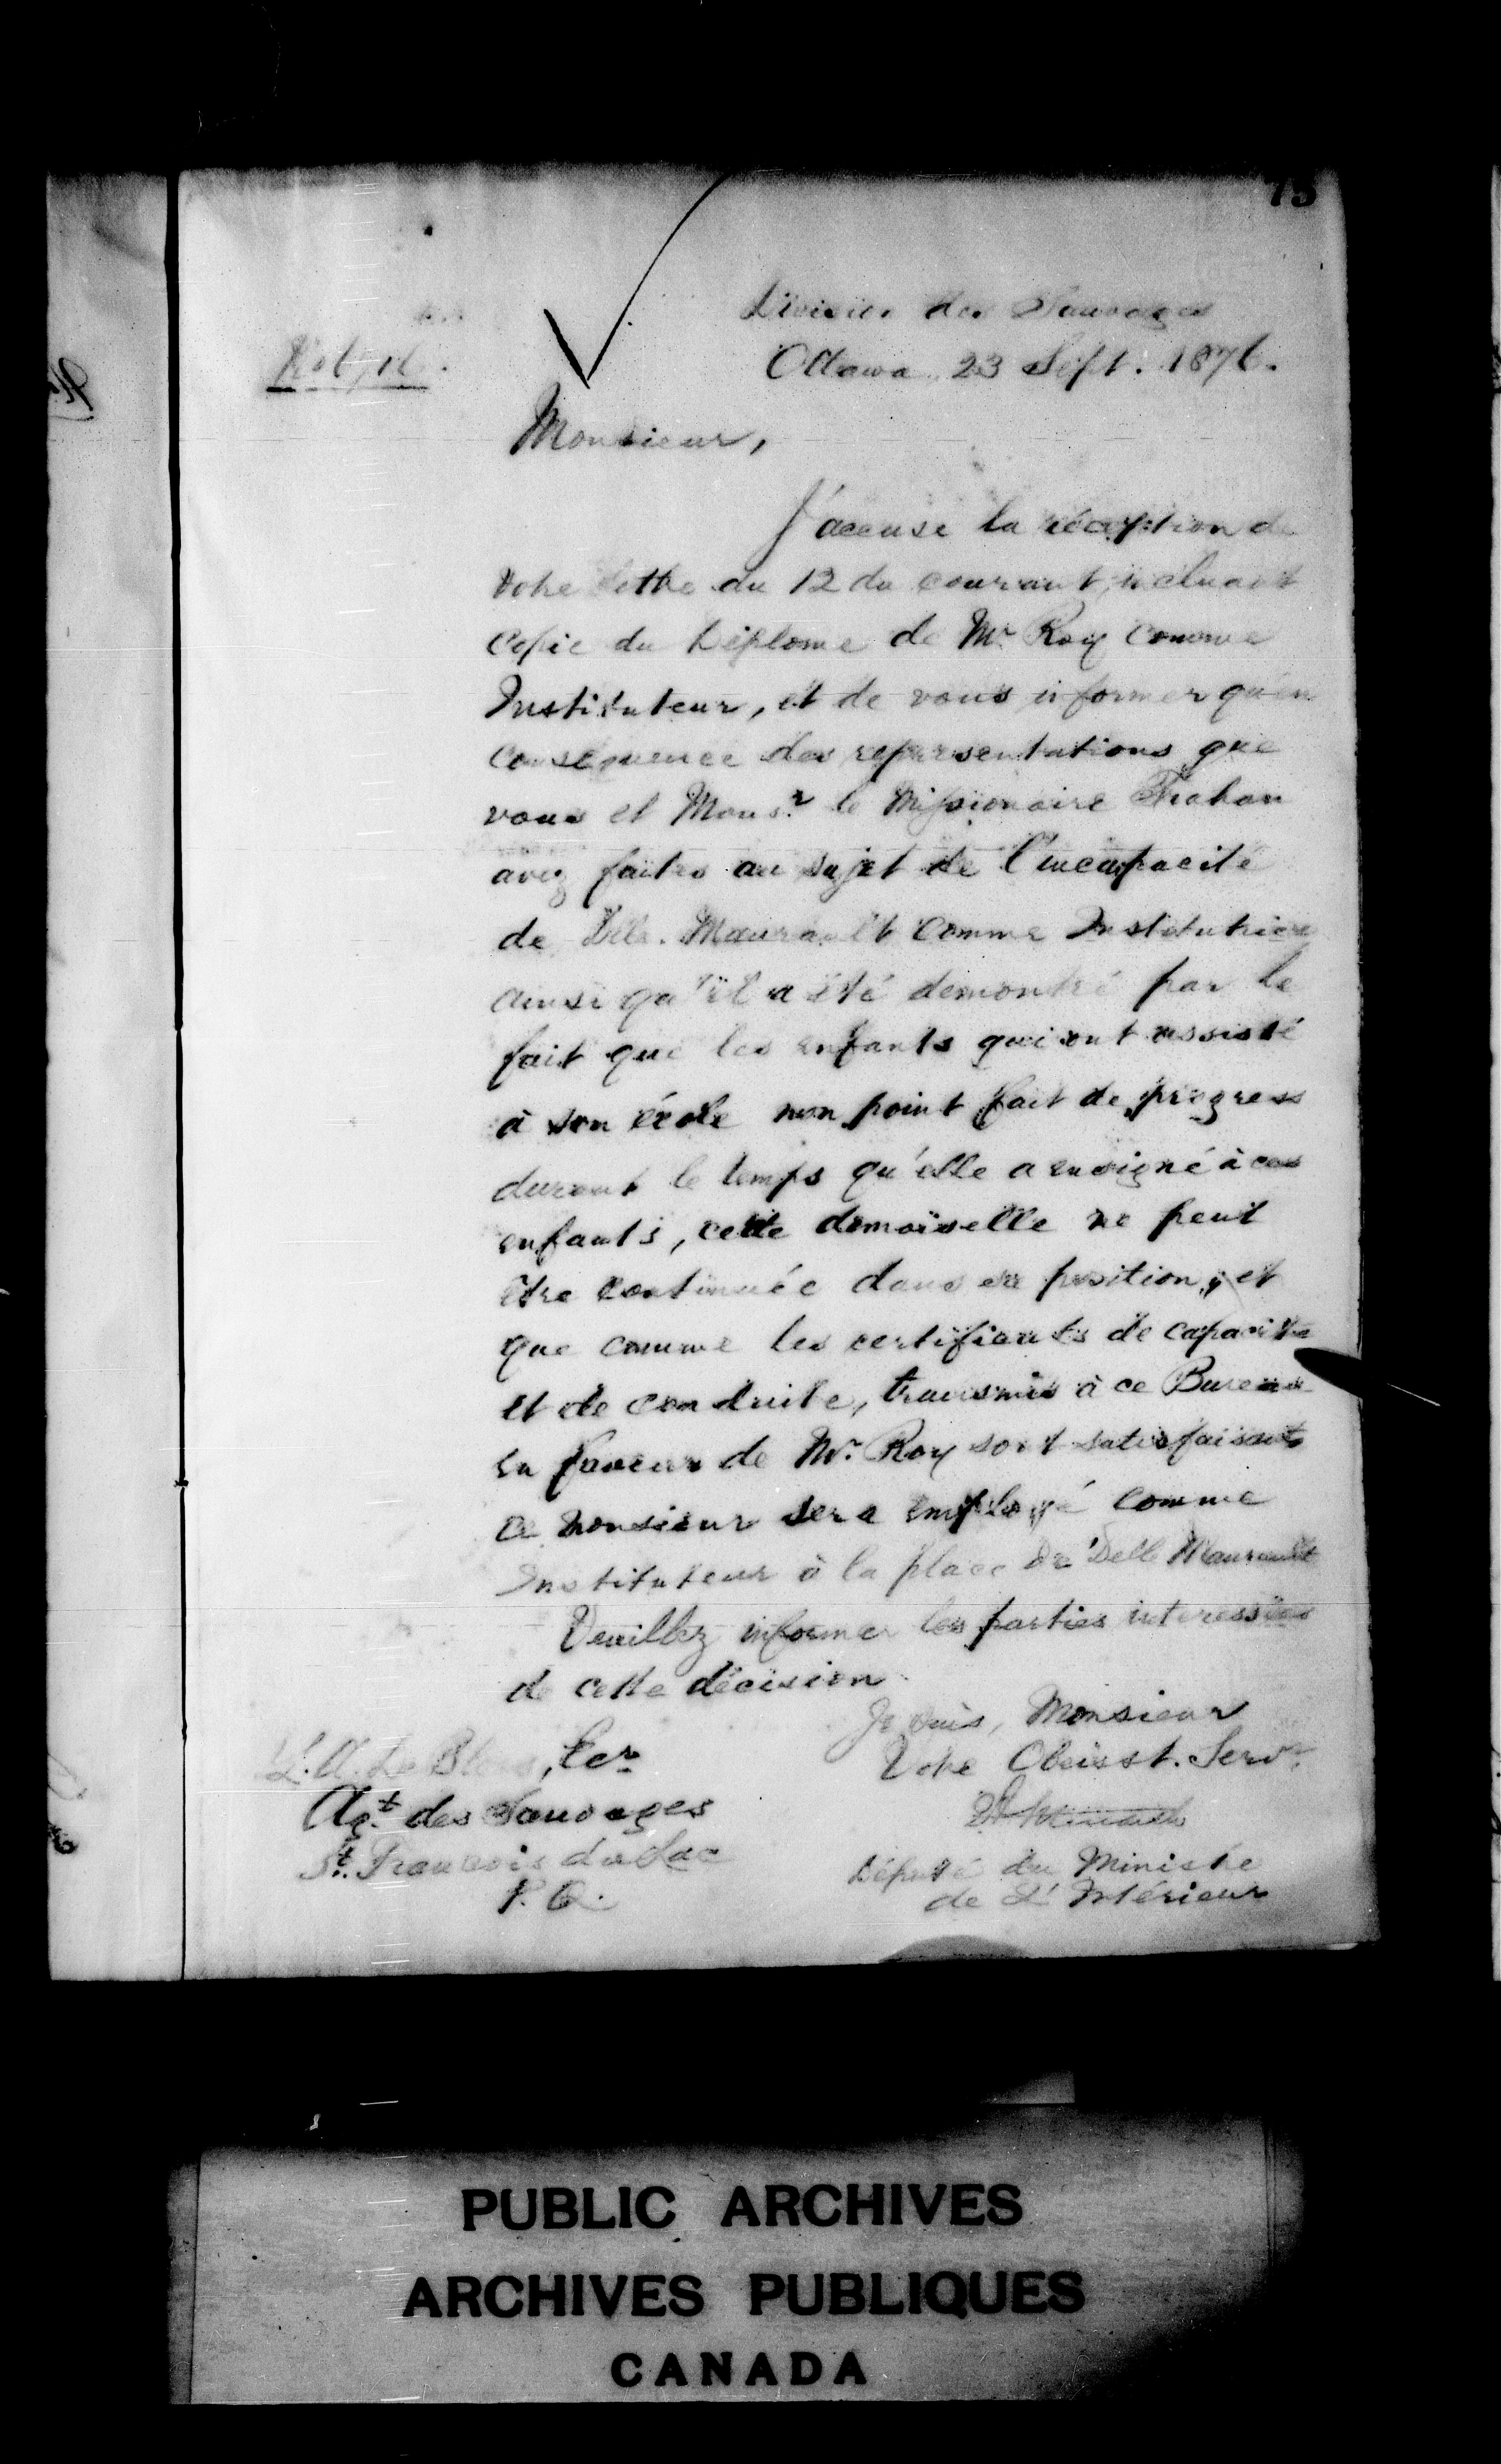 73
Division des Sauvages
Ottawa, 23 Sept. 1876.
Monsieur,
J'accuse la réception de
votre lettre du 12 du courant, incluant
Copie du Diplome de Mr. Roy comme
Instituteur, et de vous informer qu'en
consequence des representations que
vous et Monsr. le Missionaire Trahan
avez faites au sujet de l'incapacité
de Delle. Maurault comme Institutrice
ainsi qu'il a été demontré par le
fait que les enfants qui ont assisté
à son école non point fait de progress
durant le temps qu'elle a ensigné à ces
enfants, cette demoiselle ne peut
être continuée dans sa position, et
que comme les certificats de capacité
et de conduite, transmis à ce Bureau
en faveur de Mr. Roy sont satisfaisants
ce monsieur sera employé comme
Instituteur à la place de Delle Maurault
Veuillez informer les parties interessées
de cette décision.
Je suis, Monsieur
Votre Obeisst. Servr.
Député du Ministre
de L'Intérieur
L. A. De Blois, Ecr
Agt. des Sauvages
St. Francois du Lac
P. Q.
PUBLIC ARCHIVES
ARCHIVES PUBLIQUES
CANADA